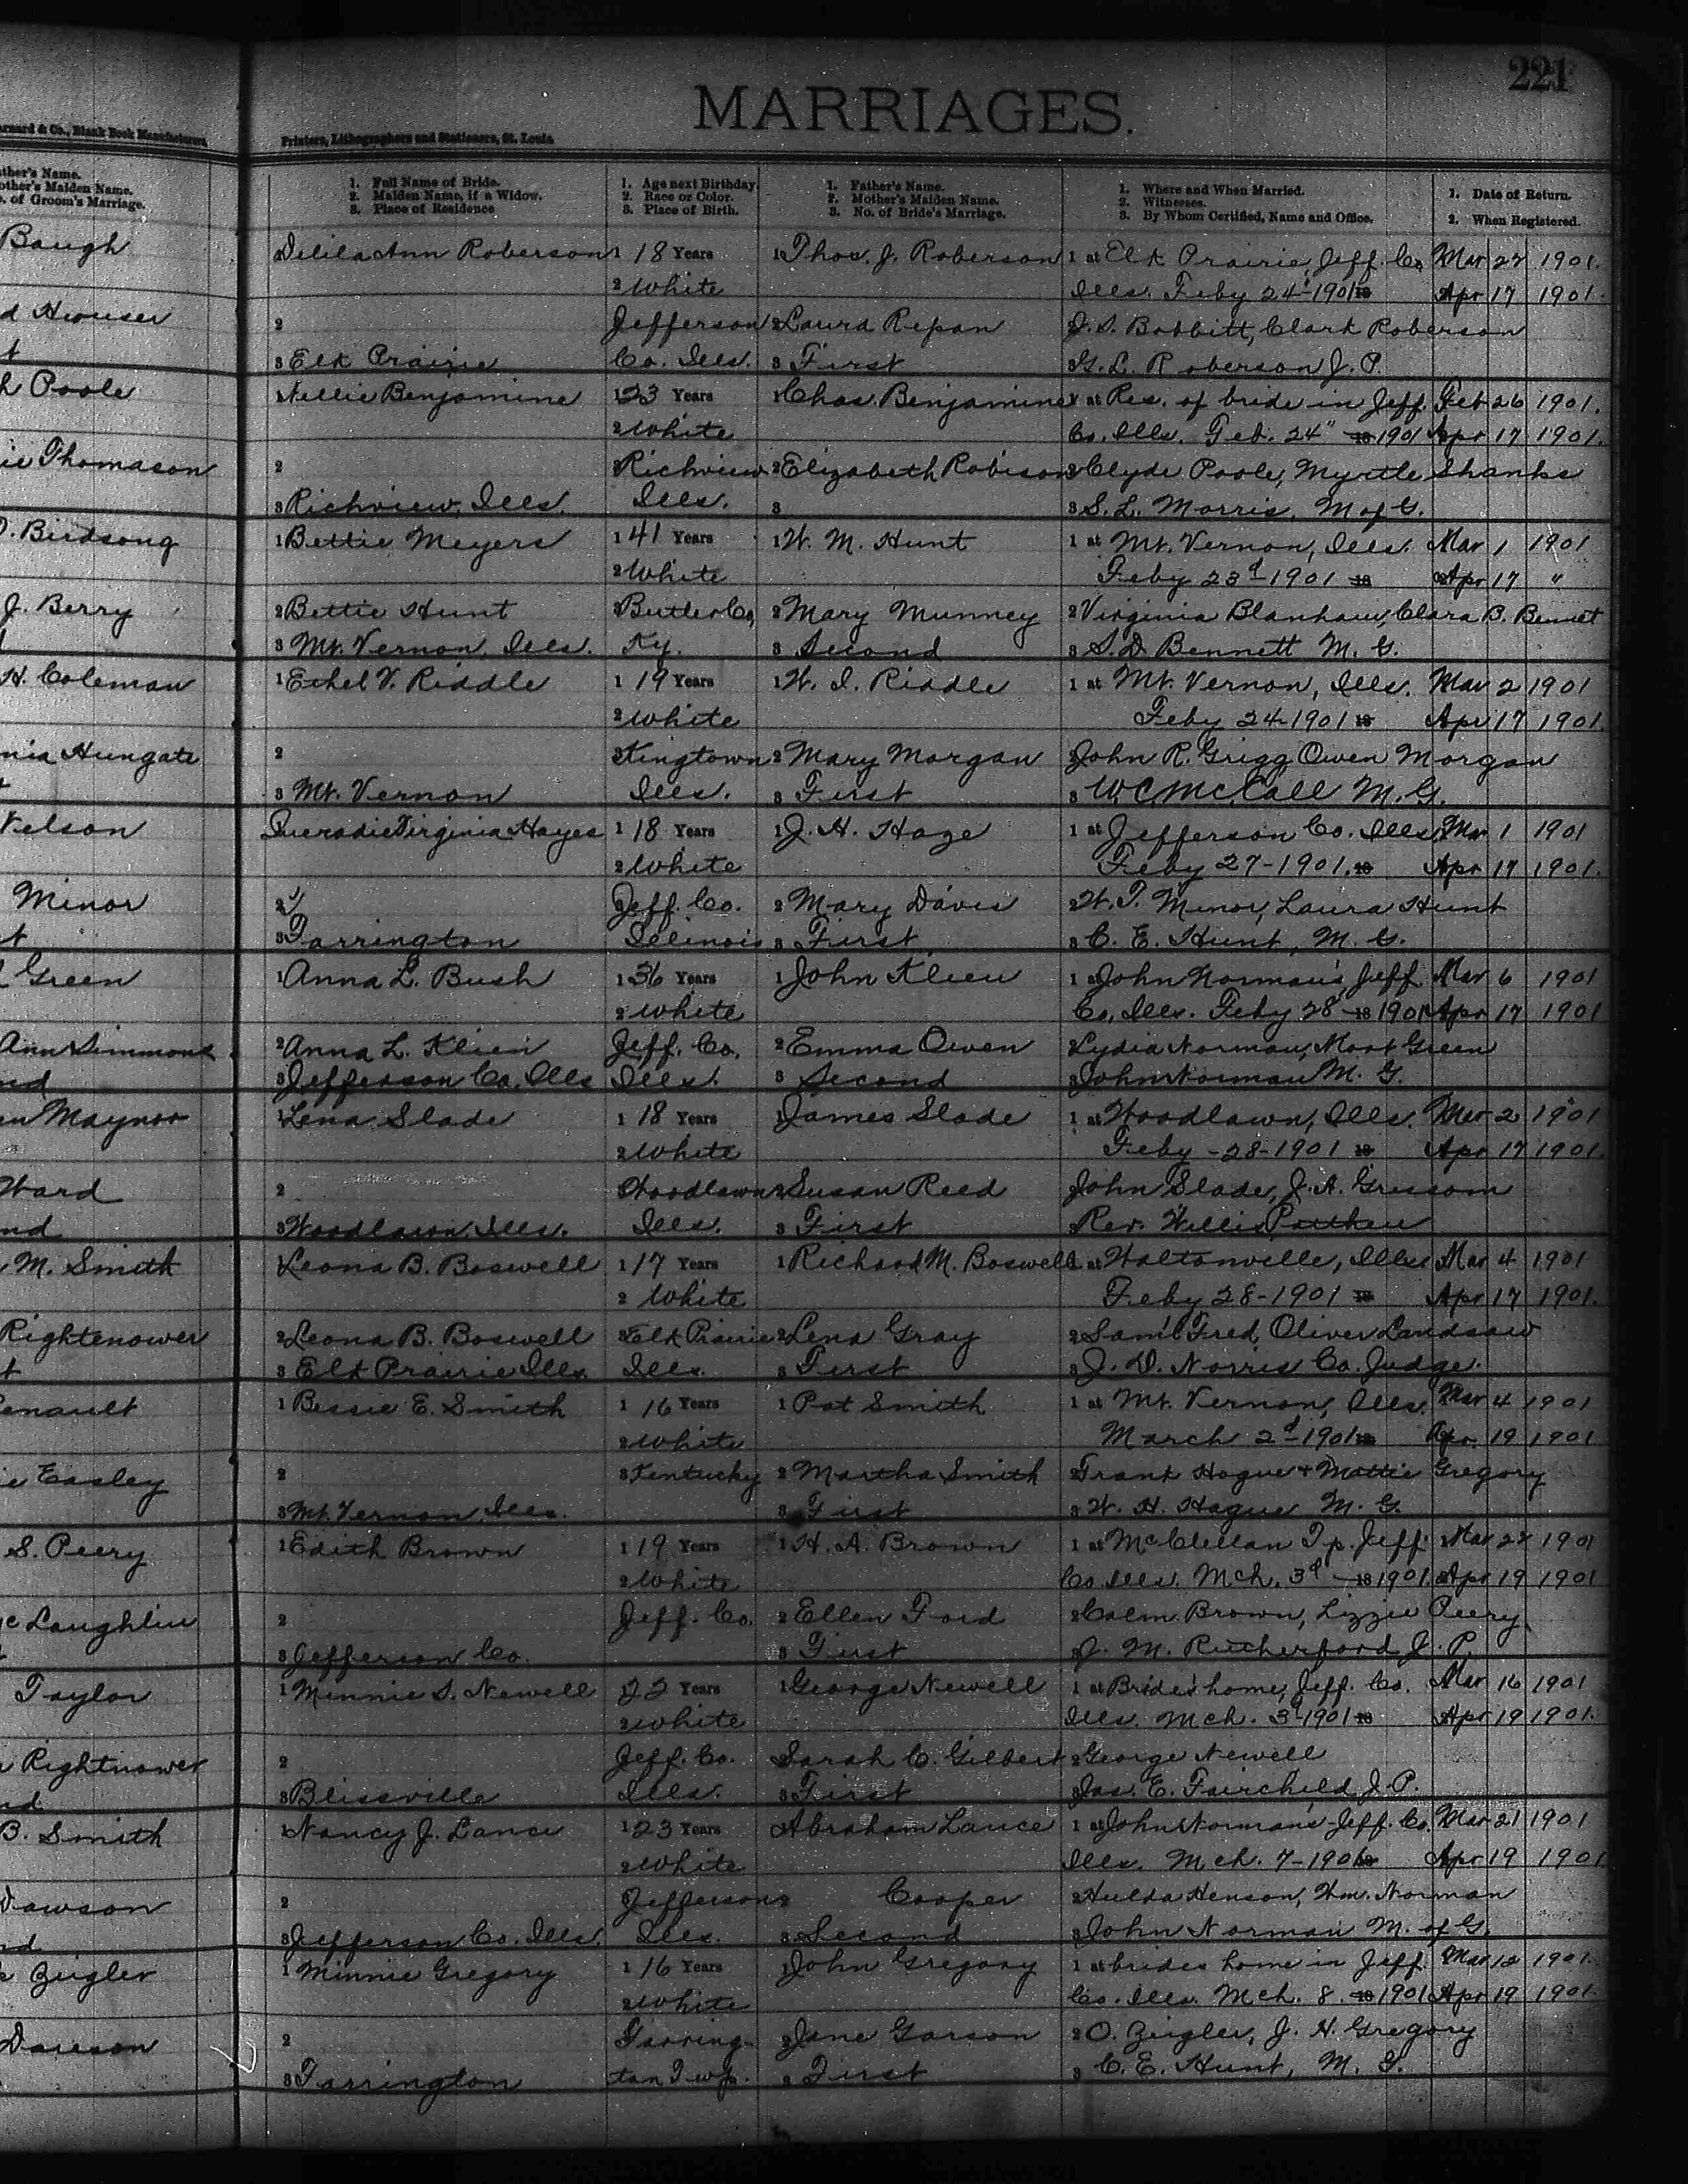 221
MARRIAGES.
arnard & Co., Blank Book Manufacturers, Printers, Lithographers and Stationers, St. Louis.
ther's Name.
other's Maiden Name.
. of Groom's Marriage.
1. Full Name of Bride.
2. Maiden Name, if a Widow.
3. Place of Residence
1. Age next Birthday.
2. Race or Color.
3. Place of Birth.
1. Father's Name.
2. Mother's Maiden Name.
3. No. of Bride's Marriage.
1. Where and When Married.
2. Witnesses.
3. By Whom Certified, Name and Office.
1. Date of Return.
2. When Registered.
Baugh Delila Ann Roberson 1 18 Years 1 Thos. J. Roberson 1 at Elk Prairie, Jeff. Co Mar 27 1901.
2 White Ills. Feby 24 1901 18 Apr 17 1901.
d Hiouser 2 Jefferson 2 Laura Repan J. S. Bobbitt, Clark Roberson
t 3 Elk Prairie Co. Ills. 3 First 3 G. L. Roberson J. P.
h Poole Nellie Benjamine 1 23 Years 1 Chas. Benjamine 1 at Res. of bride in Jeff. Feb 26 1901.
2 White Co. Ills. Feb. 24" 18 1901 Apr 17 1901.
ie Thomason 2 Richview 2 Elizabeth Robison 2 Clyde Poole, Myrtle Shanks
3 Richview, Ills. Ills. 3 3 S. L. Morris, M of G.
. Birdsong 1 Bettie Meyers 1 41 Years 1 W. M. Hunt 1 at Mt. Vernon, Ills. Mar 1 1901
2 White Feby 23d 1901 18 Apr 17 "
J. Berry 2 Bettie Hunt Butler Co, 2 Mary Munney 2 Virginia Blanhaw, Clara B. Bennet
3 Mt. Vernon, Ills. Ky. 3 Second 3 S. D. Bennett M. G.
H. Coleman 1 Ethel V. Riddle 1 19 Years 1 W. I. Riddle 1 at Mt. Vernon, Ills. Mar 2 1901
2 White Feby 24-1901 18 Apr 17 1901.
nia Hungate 2 Kingtown 2 Mary Morgan John R. Grigg Owen Morgan
3 Mt. Vernon Ills. 3 First 3 W C McCall M. G.
Nelson Virginia Hayes 1 18 Years 1 J. H. Haze 1 at Jefferson Co. Ills Mar 1 1901
2 White Feby 27-1901. 18 Apr 17 1901.
Minor 2 Jeff. Co. 2 Mary Davis 2 W. T. Minor, Laura Hunt
t 3 Farrington Illinois 3 First 3 C. E. Hunt, M. G.
Green 1 Anna L. Bush 1 36 Years 1 John Klien 1 at John Norman's, Jeff. Mar 6 1901
2 White Co, Ills. Feby 28 18 1901 Apr 17 1901
Ann Simmons 2 Anna L. Klien Jeff. Co, 2 Emma Owen Lydia Norman, Moot Green
nd 3 Jefferson Co, Ills Ills. 3 Second 3 John Norman M. G.
en Maynor 1 Lena Slade 1 18 Years 1 James Slade 1 at Woodlawn, Ills. Mar 2 1901
2 White Feby -28-1901 18 Apr 17 1901.
Ward 2 Woodlawn 2 Susan Reed John Slade, J. A. Grissom
nd 3 Woodlawn, Ills. Ills. 3 First 3 Rev. Willis
M. Smith Leona B. Boswell 1 17 Years 1 Richard M. Boswell 1 at Waltonville, Ills Mar 4 1901
2 White Feby 28-1901 18 Apr 17 1901.
Rightenower 2 Leona B. Boswell Elk Prairie 2 Lena Gray 2 Saml Fred, Oliver Landsaw
t 3 Elk Prairie Ills. Ills. 3 First 3 J. D. Norris Co. Judge.
enault 1 Bessie E. Smith 1 16 Years 1 Pat Smith 1 at Mt. Vernon, Ills. Mar 4 1901
2 White March 2d-1901 18 Apr. 19 1901
ie Easley 2 3 Kentucky 2 Martha Smith 2 Frank Hogue + Mattie Gregory
3 Mt. Vernon, Ills. 3 First 3 W. H. Hague M. G.
S. Peery 1 Edith Brown 1 19 Years 1 H. A. Brown 1 at McClellan Tp. Jeff. Mar 27 1901
2 White Co. Ills. Mch. 3d 18 1901 Apr 19 1901
c Laughlin 2 Jeff. Co. 2 Ellen Ford 2 Calm. Brown, Lizzie Peery
3 Jefferson Co. 3 First 3 J. M. Rutherford J. P.
Taylor 1 Minnie S. Newell 1 22 Years 1 George Newell 1 at Bride's home, Jeff. Co. Mar 16 1901
2 White Ills. Mch. 3d-1901 18 Apr 19 1901.
Rightnower 2 Jeff. Co. Sarah C. Gilbert 2 George Newell
nd 3 Blissville Ills. 3 First 3 Jas. E. Fairchild J. P.
B. Smith 1 Nancy J. Lance 1 23 Years Abraham Lance 1 at John Norman's-Jeff. Co. Mar 21 1901
2 White Ills. Mch. 7-1901 18 Apr 19 1901
Dawson 2 Jefferson 2 Cooper 2 Hulda Henson, Wm. Norman
nd 3 Jefferson Co. Ills. Ills. 3 Second 3 John Norman M. of G.
Zeigler 1 Minnie Gregory 1 16 Years 1 John Gregory 1 at brides home in Jeff. Mar 12 1901.
2 White Co. Ills. Mch. 8. 18 1901 Apr 19 1901.
Dawson 2 Farring- 2 Jane Garson 2 O. Zeigler, J. H. Gregory
3 Farrington ton Twp. 3 First 3 C. E. Hunt, M. G.